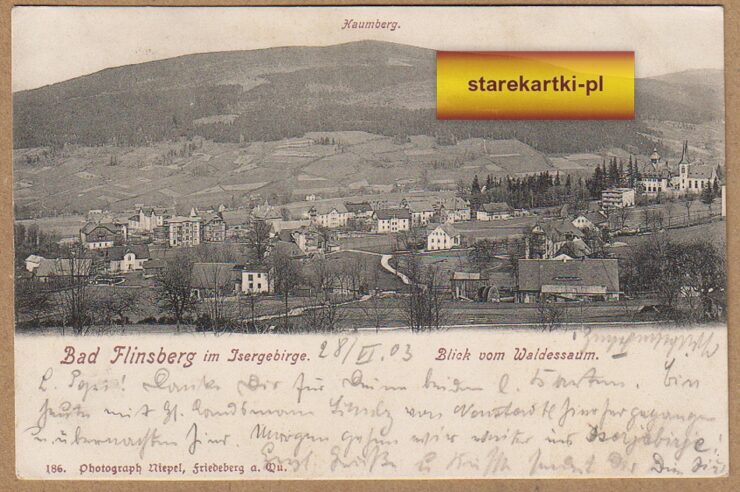 Haumberg.
starekartki-pl
Bad Flinsberg im Isergebirge. 28/VI.03 Blick vom Waldessaum.
L. Papa! Danke Dir für Deine beiden l. Karten. Bin
heute mit von hierher gegangen
u. übernachten hier. Morgen gehen wir weiter ins Isergebirge!
Grüße u. Küsse sendet dir Dein
186. Photograph Niepel, Friedeberg a. Qu.